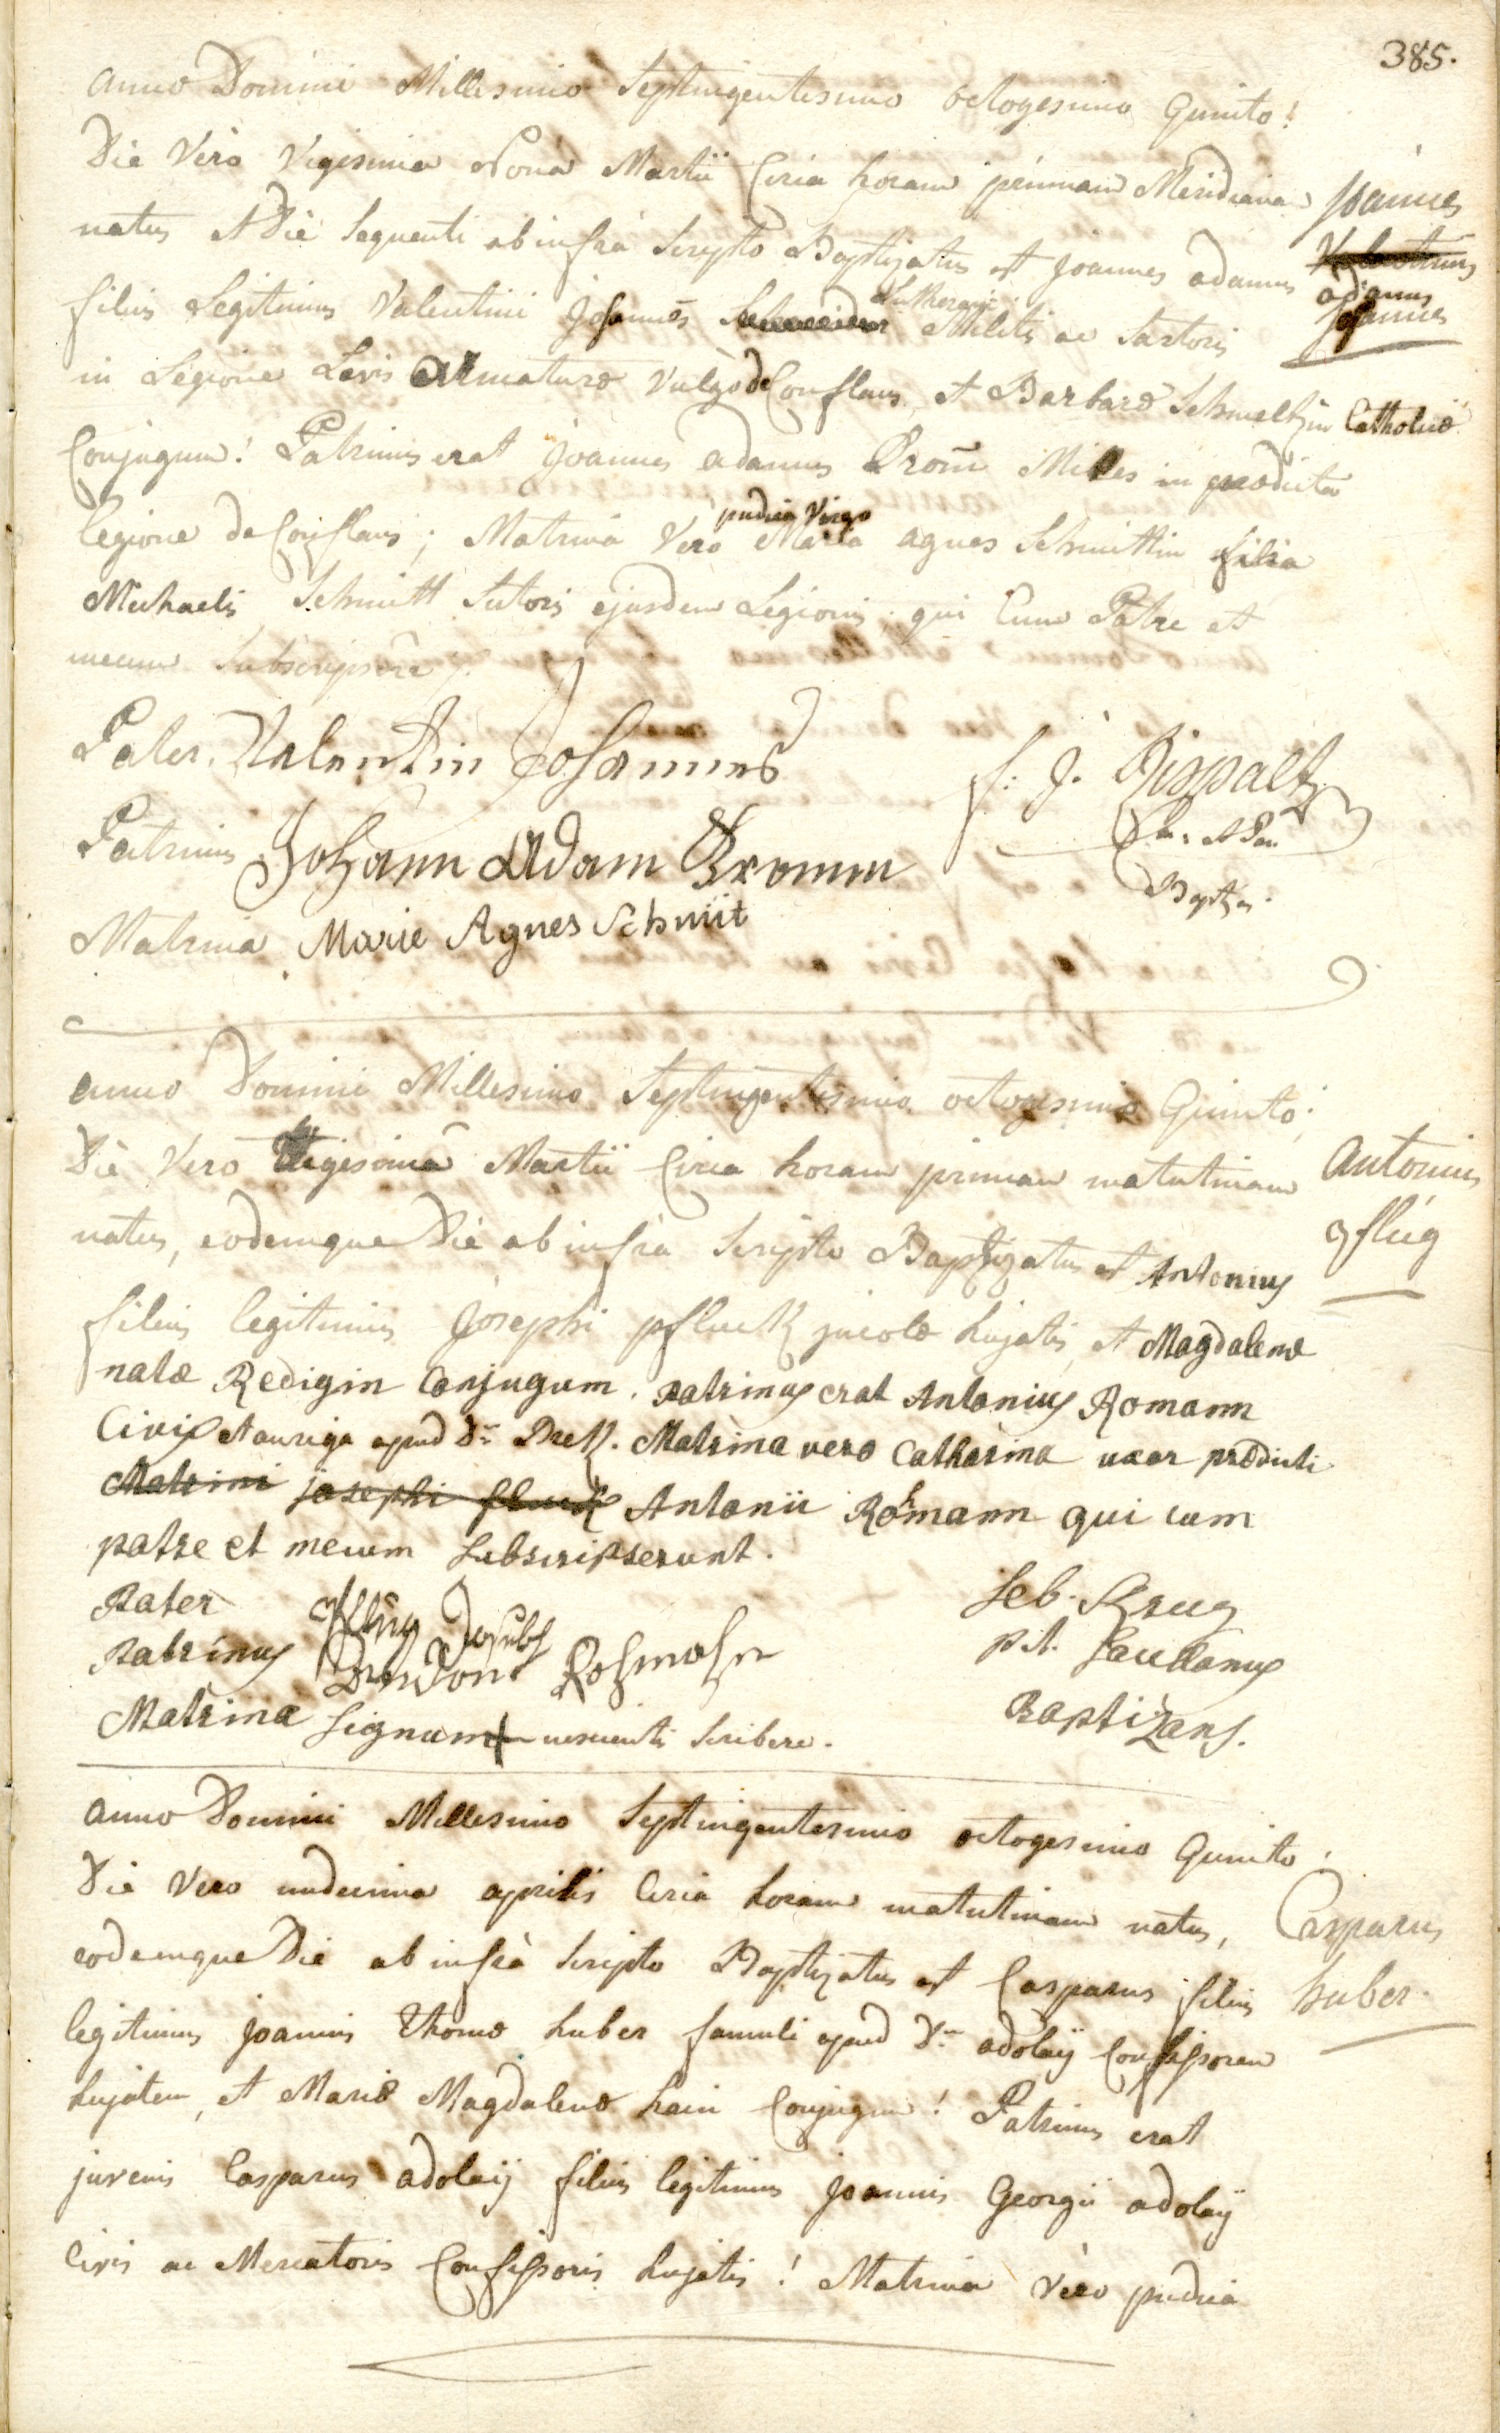 385.
anno Domini Millesimo Septingentesimo octogesimo Quinto!
Die Vero Vigesima Nona Martii Circa horam primam Meridiana
natus et Die Sequenti ab infrà Scripto Baptizatus est Joannes adamus
Joannes
adamus
Johannes
filius Legitimus Valentini Johannes Lutherani Militis ac Sartoris
in Legione Levis Armaturæ vulgò de Conflans, et Barbaræ Schmeltzin Catholicæ
Conjugum! Patrinus erat Joannes adamus Brom̄ Miles in prædicta
legione de Conflans; Matrina Vero pudica Virgo Maria agnes Schmittin filia
Michaelis Schmitt Sutoris ejusdem Legionis; qui Cum Patre et
mecum Subscripsere
Pater. Valentin Johannes
Patrinus Johann Adam Bromm
Matrina Marie Agnes Schmit
f: J.
Baptizans.
anno Domini Millesimo Septingentesimo octogesimo Quinto;
Die Vero Trigesima Martii Circa horam primam matutinam
natus, eodemque Die ab infrà Scripto Baptizatus est Antonius
Antonius
Pflúg
filius legitimus Josephi Pfluck incolæ hujatis, et Magdalenæ
natæ Redigin Conjugum. Patrinus erat Antonius Romann
Civis et auriga apud Dm̄ Matrina vero Catharina uxor prædicti
Matrini josephi fluck Antonii Rohmann qui cum
patre et mecum subscripserunt.
Pater Pflúg Joseph
Patrinus Rohmahn
Matrina Signum + nescientis Scribere.
Seb. Krug
p.t. Sacellanus
Baptizans.
anno Domini Millesimo Septingentesimo octogesimo Quinto.
Die Vero undecima aprilis Circa horam matutinam natus,
eodemque Die ab infrà Scripto Baptizatus est Casparus filius
Casparus
huber.
legitimus Joannis Thomæ huber famuli apud Dm̄ adolaÿ Consessorem
hujatem, et Mariæ Magdalenæ hain Conjugum! Patrinus erat
juvenis Casparus adolaij filius legitimus Joannis Georgii adolaÿ
Civis ac Mercatoris Consessoris hujatis! Matrina Vèro pudica